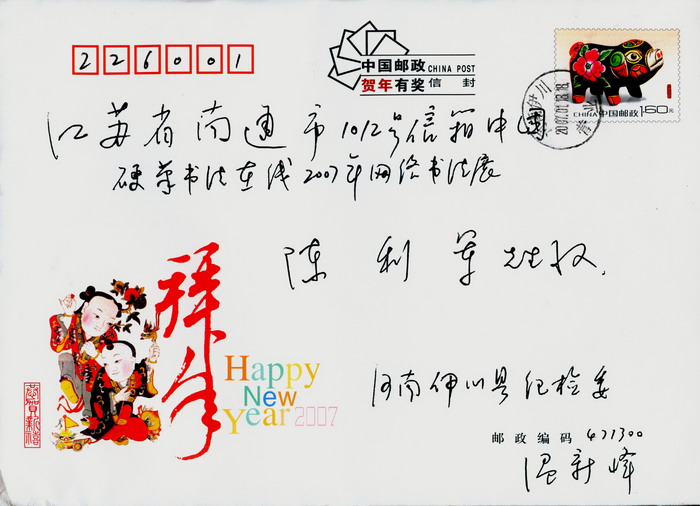 226001
中国邮政 CHINA POST
贺年有奖信封
CHINA 中国邮政 160元
江苏省南通市1012号信箱中国
硬笔书法在线2007年网络书法展
陈利军先生收
拜年
Happy
New
Year 2007
恭贺新禧
河南伊川县纪检委
邮政编码 471300
温新峰